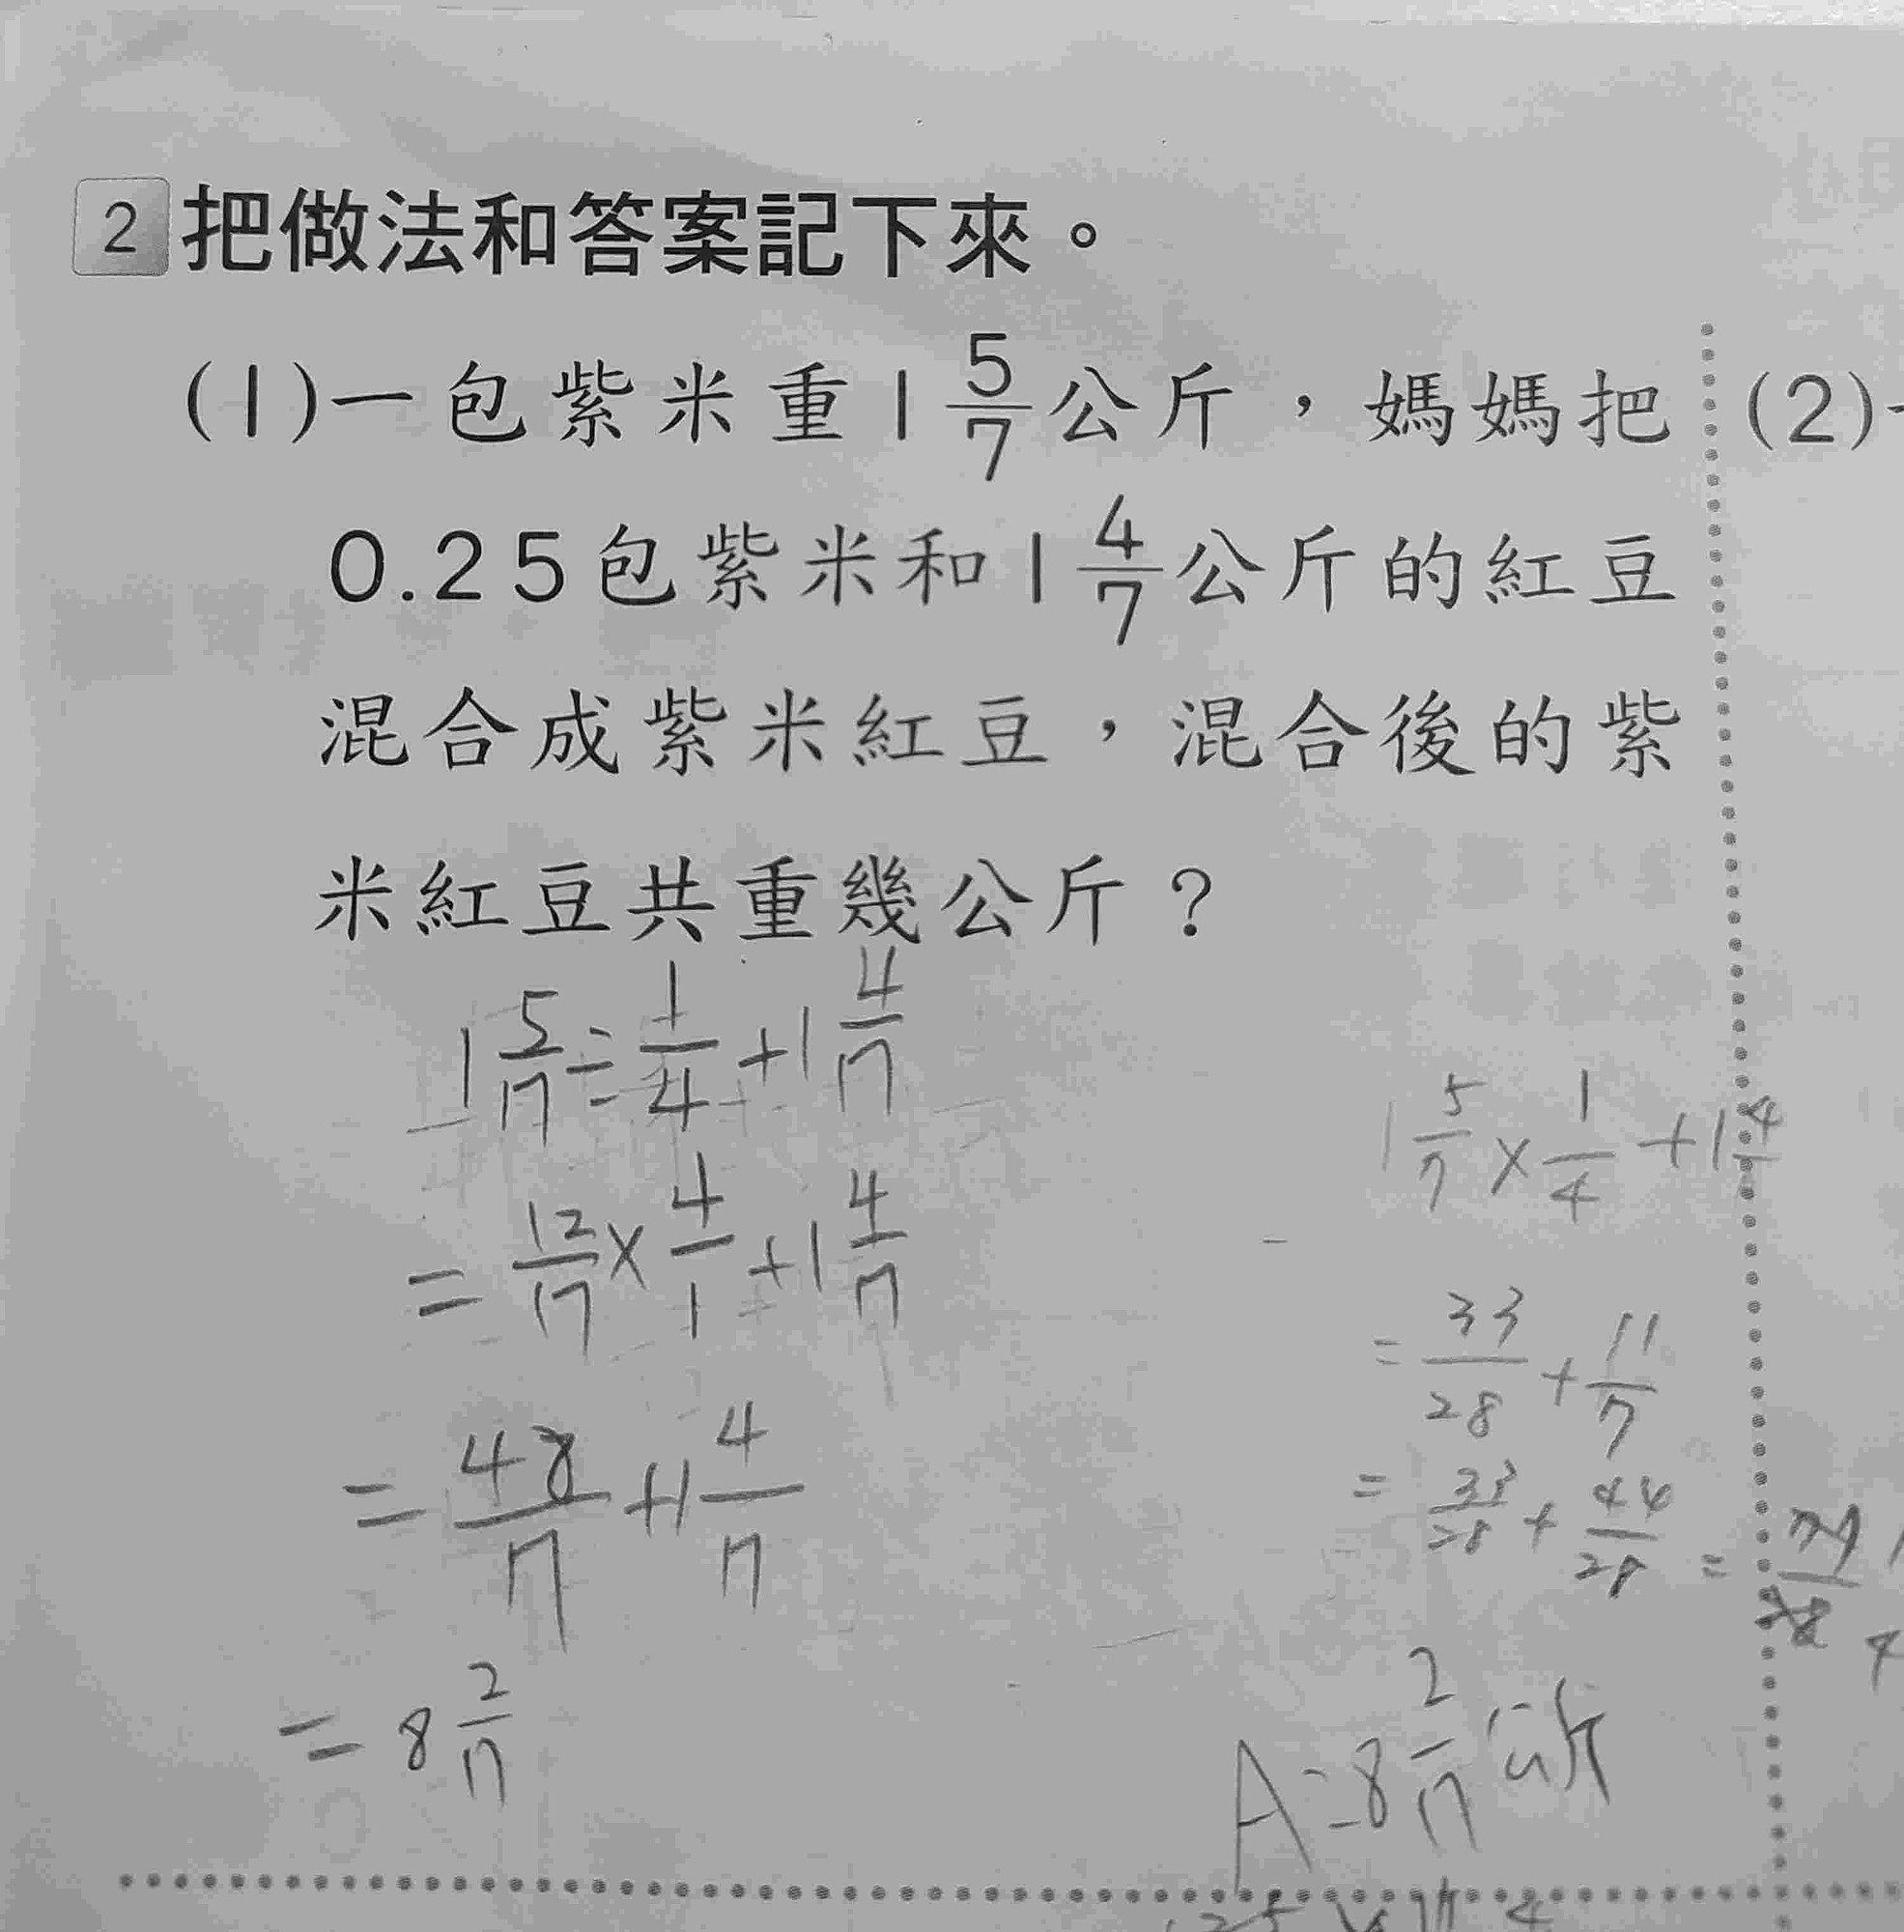 2 把做法和答案記下來。
(1)一包紫米重1 5/7 公斤,媽媽把
0.25包紫米和1 4/7 公斤的紅豆
混合成紫米紅豆,混合後的紫
米紅豆共重幾公斤?
1 5/7 ÷ 1/4 + 1 4/7
= 12/7 × 4/1 + 1 4/7
= 48/7 + 1 4/7
= 8 2/7
1 5/7 × 1/4 + 1 4
= 33/28 + 11/7
= 33/28 + 44/28 =
A=8 2/7 公斤
(2)